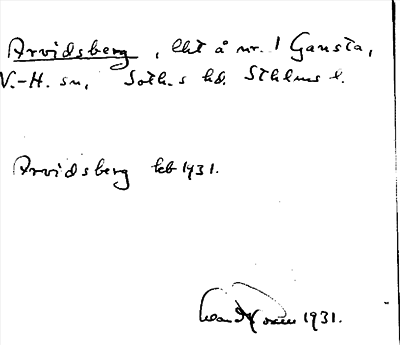 Arvidsberg, lht å nr. 1 Gansta,
V.-H. sn, Soth.s hd. Sthlms l.
Arvidsberg kb 1931.
1931.